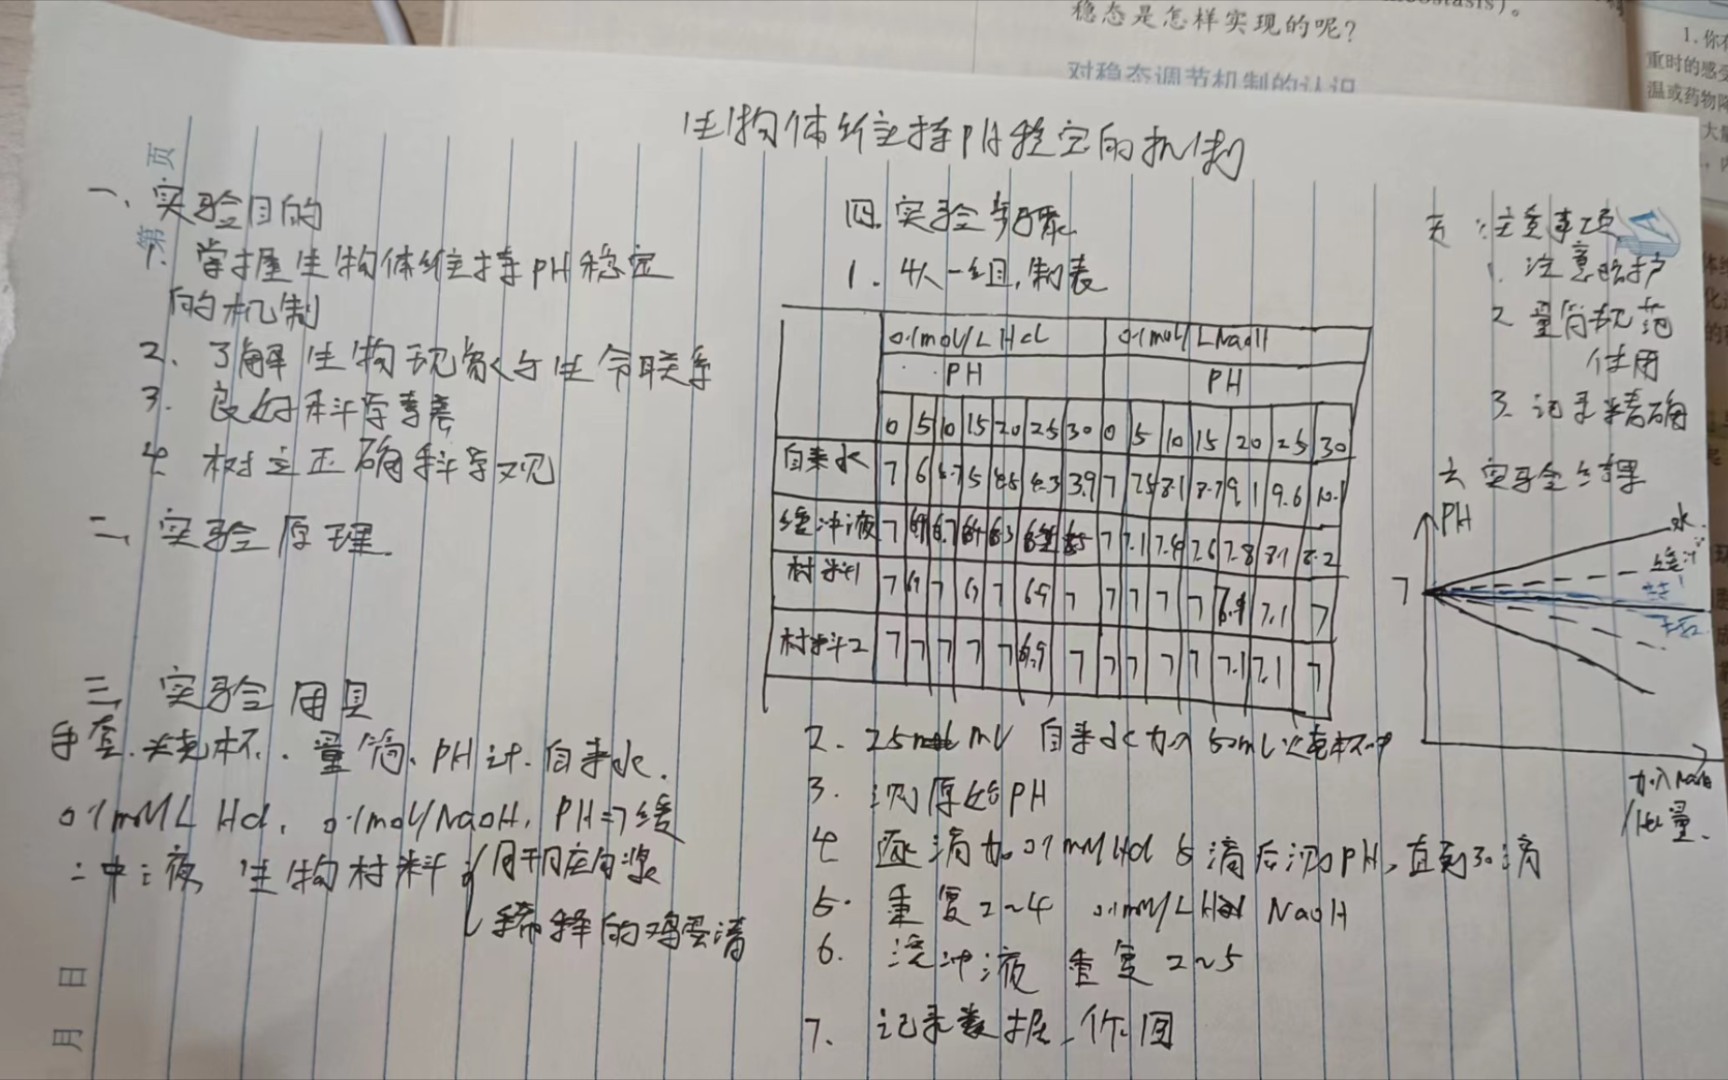 稳态是怎样实现的呢?
对稳态调节机制的认识
1.你
重时的感受
温或药物降
大
生物体维持PH稳定的机制
第 页
一、实验目的
1. 掌握生物体维持PH稳定
的机制
2、了解生物现象与生命联系
3. 良好科学素养
4 树立正确科学观
二、实验原理
三 实验用具
手套、烧杯、量筒、PH计、自来水、
0.1mol/L Hcl、0.1mol/NaOH、PH=7缓
冲液 生物材料
用于
稀释的鸡蛋清
日
月
四.实验步骤
1. 4人一组,制表
0.1mol/L Hcl 0.1mol/LNaOH
PH PH
0 5 10 15 20 25 30 0 5 10 15 20 25 30
自来水 7 6 5 4.5 4.3 3.9 7 7.5 8.1 8.7 9.1 9.6 10.1
缓冲液 7 6.9 6.7 6.4 6.3 6.5 7 7.1 7.4 7.6 7.8 8.1 8.2
材料1 7 6.9 7 6.9 7 6.9 7 7 7 7 7 6.9 7.1 7
材料2 7 7 7 7 7 6.9 7 7 7 7 7 7.1 7.1 7
2. 25 ml 自来水加入50mL烧杯中
3. 测原始PH
4 逐滴加0.1mol Hcl 5滴后测PH,直到30滴
5. 重复2~4 0.1mol/L NaOH
6. 缓冲液 重复2~5
7、记录数据、作图
五 注意事项
1. 注意防护
2 量筒规范
使用
3. 记录精确
六 实验结果
PH
水
缓冲
7
加入NaOH
/Hcl量.